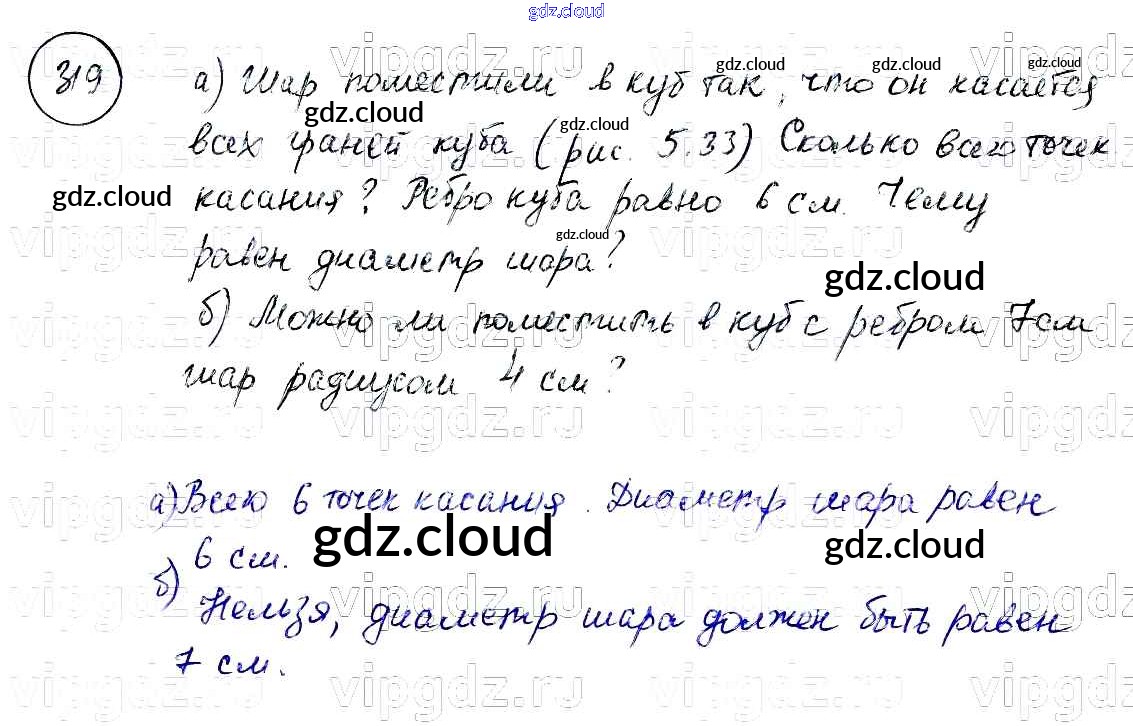 gdz.cloud
319
а) Шар поместили в куб так, что он касается
всех граней куба (рис. 5.33) Сколько всего точек
касания? Ребро куба равно 6 см. Чему
равен диаметр шара?
б) Можно ли поместить в куб с ребром 7 см
шар радиусом 4 см?
а) Всего 6 точек касания. Диаметр шара равен
6 см.
б)
Нельзя, диаметр шара должен быть равен
7 см.
gdz.cloud
gdz.cloud
gdz.cloud
gdz.cloud
gdz.cloud
gdz.cloud
gdz.cloud
gdz.cloud
gdz.cloud
gdz.cloud
vipgdz.ru